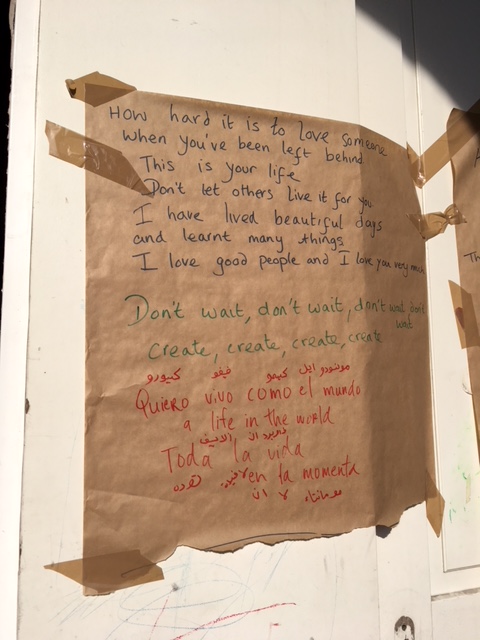 How hard it is to love someone
when you've been left behind
This is your life
Don't let others live it for you
I have lived beautiful days
and learnt many things
I love good people and I love you very much
Don't wait, don't wait, don't wait don't
wait
create, create, create, create
موندو ايل كيمو فيفو كيورو
Quiero vivo como el mundo
a life in the world
Toda la vida
en la momenta
لا ان